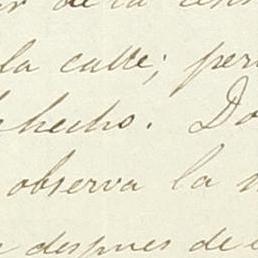 de la
la calle; per
hecho. Do
observa la
despues de